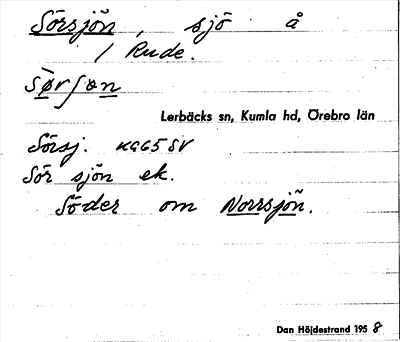 Sörsjön, sjö å
/ Rude.
Lerbäcks sn, Kumla hd, Örebro län
Sörsj. KG65 SV
Sör sjön ek.
Söder om Norrsjön.
Dan Höjdestrand 1958